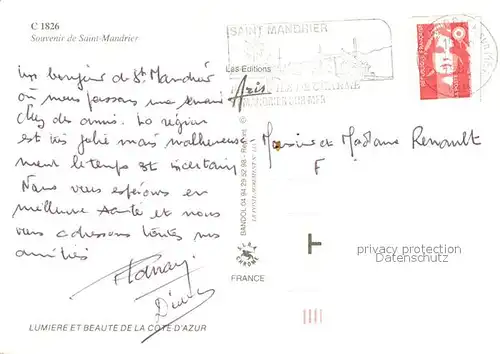 C 1826
Souvenir de Saint-Mandrier
un bonjour de St Mandrier
où nous passons une semaine
chez des amis. La région
est très jolie mais malheureuse
ment le temps est incertain
Nous vous espérons en
meilleure santé et nous
vous adressons toutes nos
amitiés
SAINT MANDRIER
Les Editions
Aris
BANDOL 04 94 29 52 98
FRANCE
Monsieur et Madame Renault
F
privacy protection
Datenschutz
LUMIERE ET BEAUTE DE LA COTE D'AZUR